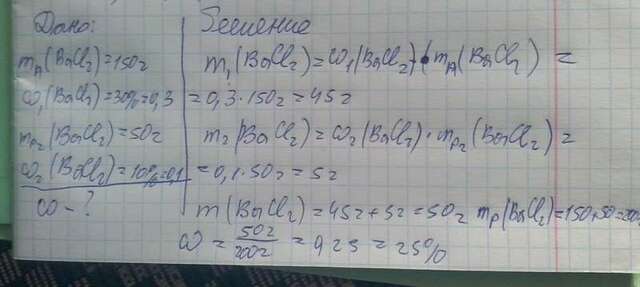 Дано:
m_p1(BaCl₂)=150г
ω₁(BaCl₂)=30%=0,3
m_p2(BaCl₂)=50г
ω₂(BaCl₂)=10%=0,1
ω-?
Решение
m₁(BaCl₂)=ω₁(BaCl₂)·m_p1(BaCl₂) =
= 0,3·150г=45г
m₂(BaCl₂)=ω₂(BaCl₂)·m_p2(BaCl₂)=
=0,1·50г=5г
m(BaCl₂)=45г+5г=50г m_p(BaCl₂)=150+50=200г
ω = 50г/200г = 0,25 = 25%